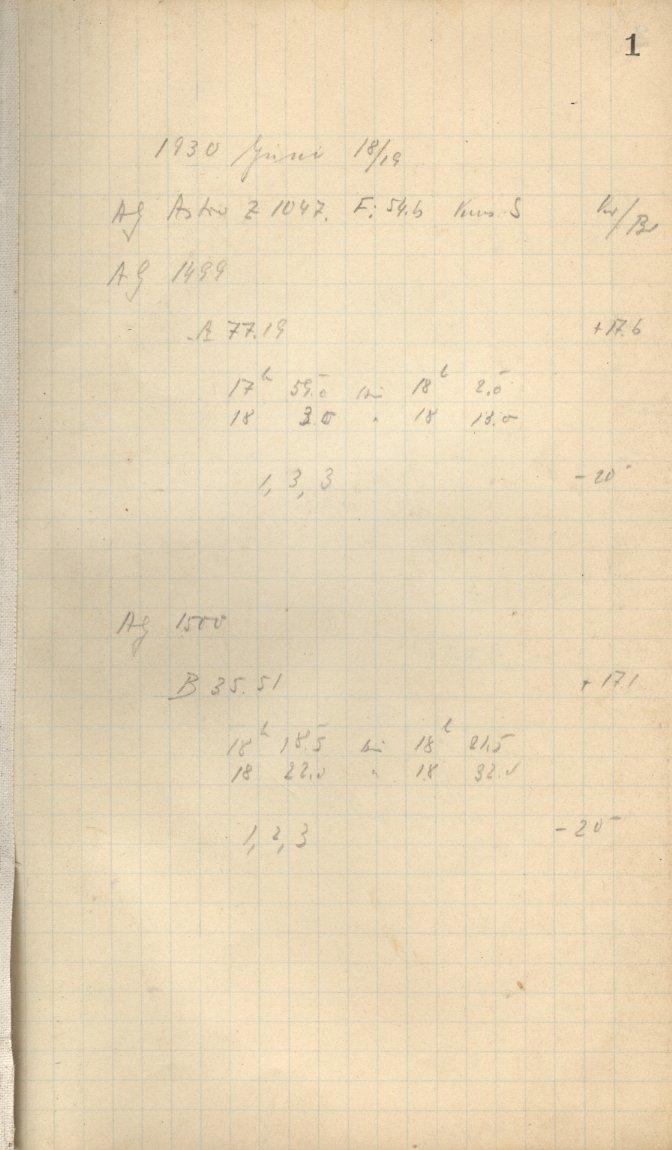 1
1930 Juni 18/19
AG Astro Z 1047. F: 54.6 S
AG 1499
A 77.19 +17.6
17h 59.0 bis 18h 2.0
18 3.0 " 18 13.0
1, 3, 3 -20
AG 1500
B 35.51 +17.1
18h 18.5 bis 18h 21.5
18 22.0 " 18 32.0
1, 2, 3 -20